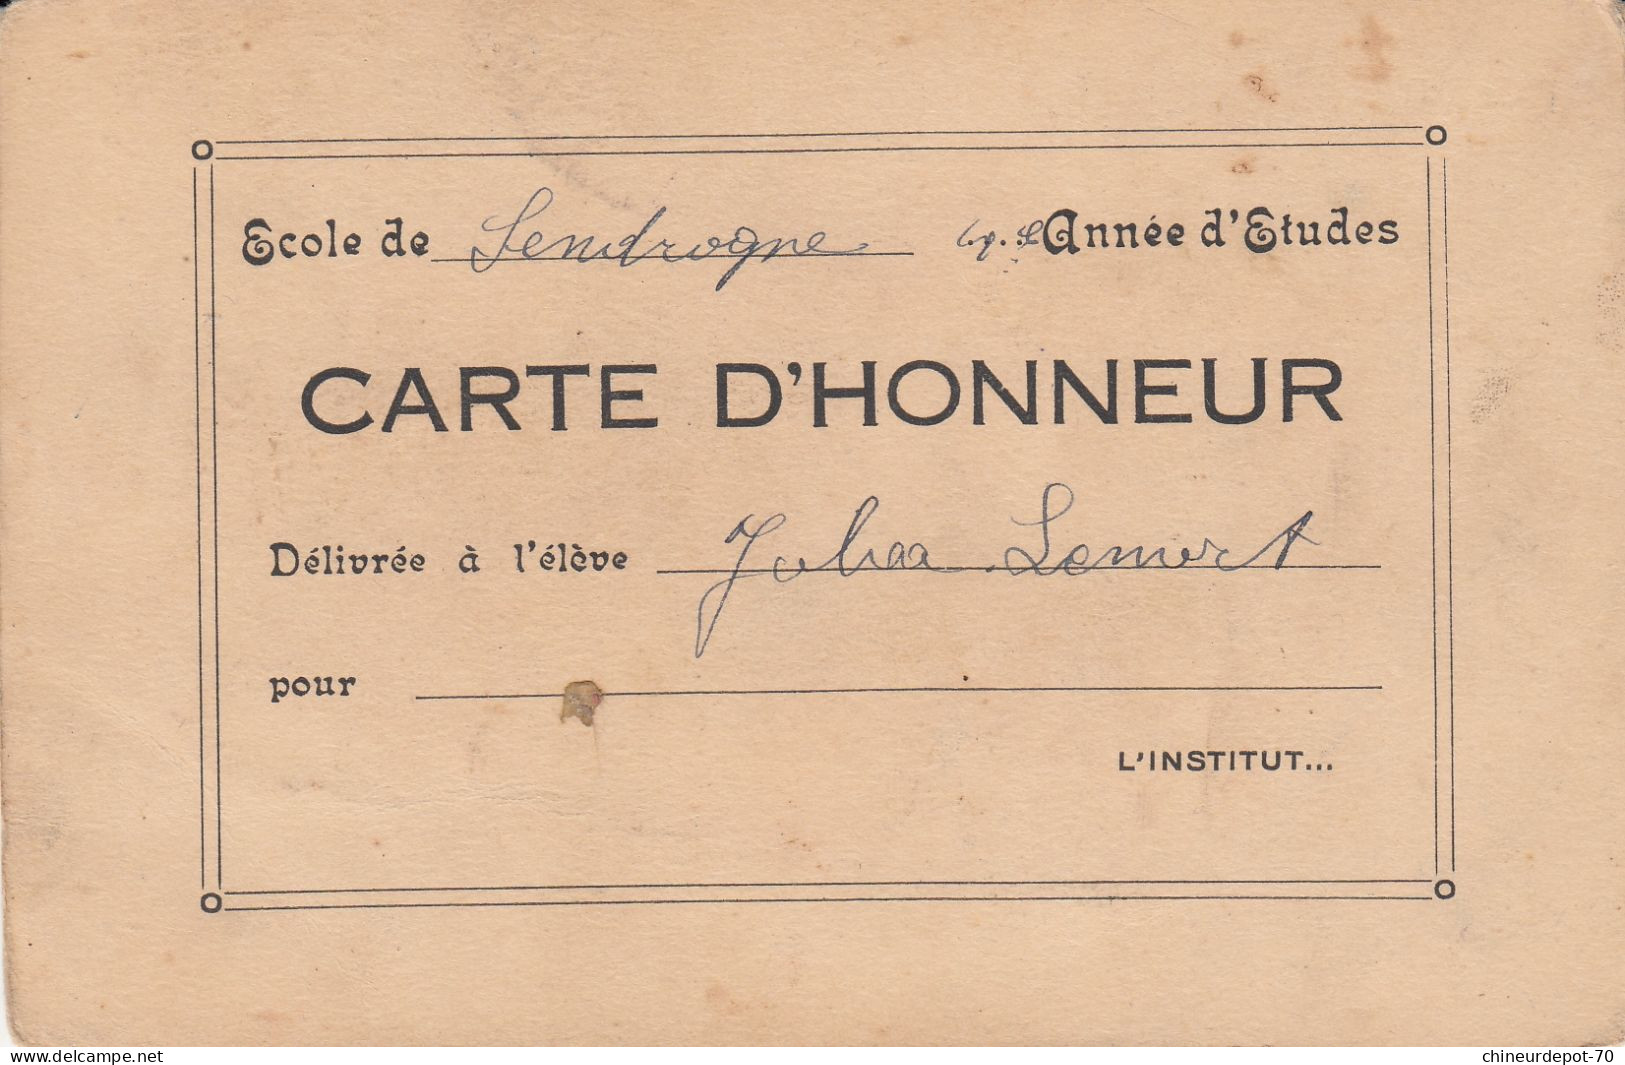 Ecole de Sendrogne Année d'Etudes
CARTE D'HONNEUR
Délivrée à l'élève Julia Lemort
pour
L'INSTITUT...
www.delcampe.net
chineurdepot-70